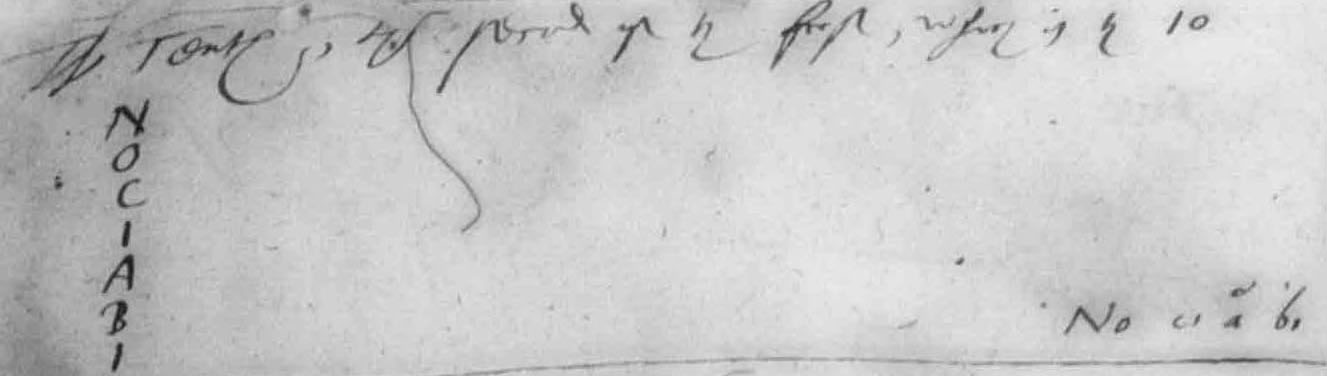 The Tenth is the second of the first, which is the 10
N
O
C
I
A
B
I
No ci a bi